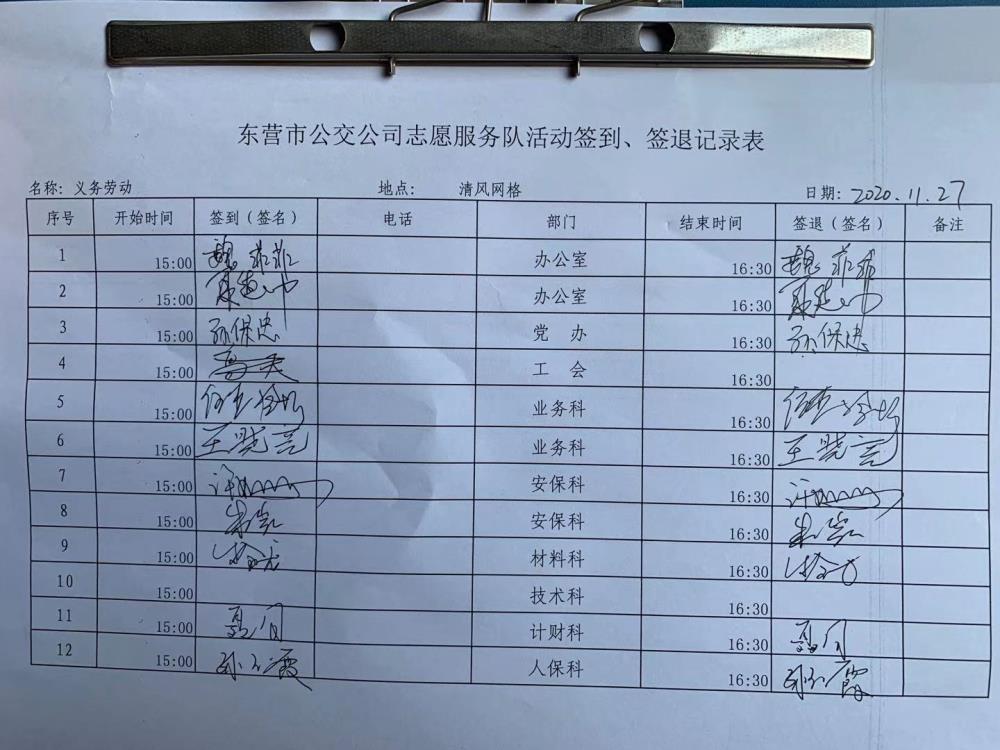 东营市公交公司志愿服务队活动签到、签退记录表
名称：义务劳动 地点： 清风网格 日期：2020.11.27
序号 开始时间 签到（签名） 电话 部门 结束时间 签退（签名） 备注
1 15:00 魏菲菲 办公室 16:30 魏菲菲
2 15:00 办公室 16:30
3 15:00 孙保忠 党 办 16:30 孙保忠
4 15:00 工 会 16:30
5 15:00 业务科 16:30
6 15:00 王晓亮 业务科 16:30 王晓亮
7 15:00 安保科 16:30
8 15:00 安保科 16:30
9 15:00 材料科 16:30
10 15:00 技术科 16:30
11 15:00 计财科 16:30
12 15:00 人保科 16:30